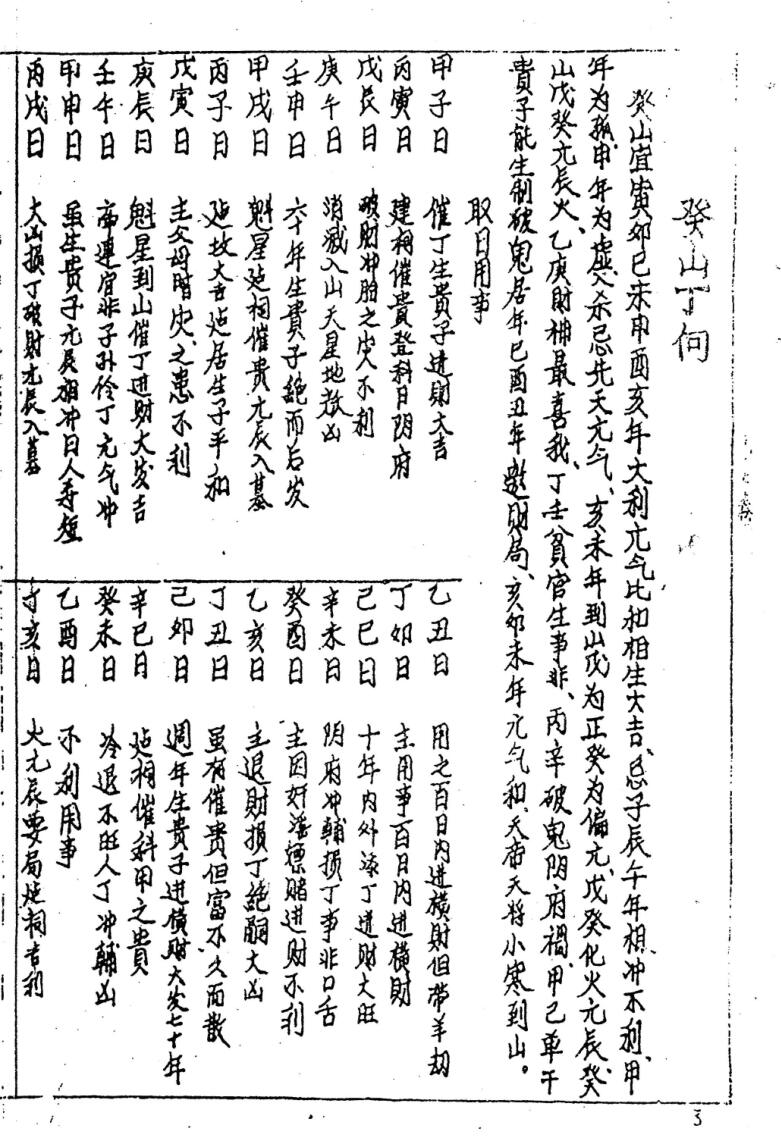 癸山丁向
癸山宜寅卯巳未申酉亥年大利亢气比和相生大吉、忌子辰午年相冲不利、甲
年为孤、申年为虚、杀忌先天亢气、亥未年到山戊为正癸为偏亢、戊癸化火元辰、癸
山戊癸亢辰火、乙庚財神最喜我、丁壬貧官生事非、丙辛破鬼阴府禍、甲己单干
貴子能生制破鬼居年巳酉丑年遊財局、亥卯未年亢气和、天帝天将小寒到山。
取日用事
甲子日 催丁生貴子進財大吉
丙寅日 建祠催貴登科日阴府
戊辰日 破財冲胎之灾不利
庚午日 消滅入山天星地煞凶
壬申日 六十年生貴子絶而后发
甲戌日 魁星延祠催貴亢辰入墓
丙子日 延坟大吉延居生子平和
戊寅日 主父母暗灾之患不利
庚辰日 魁星到山催丁进财大发吉
壬午日 帝連宜非子孙伶丁亢气冲
甲申日 虽生贵子亢辰相冲日人寿短
丙戌日 大山損丁破財亢辰入墓
乙丑日 用之百日内進橫財但带羊刼
丁卯日 主用事百日内进橫財
己巳日 十年内外添丁進财大旺
辛未日 阴府冲輔损丁事非口舌
癸酉日 主因奸淫嫖賭进财不利
乙亥日 主退財損丁絶嗣大凶
丁丑日 虽有催贵但富不久而散
己卯日 週年生贵子进橫財大发七十年
辛巳日 延祠催科甲之貴
癸未日 冷退不旺人丁冲輔凶
乙酉日 不利用事
丁亥日 火亢辰要局延祠吉利
3